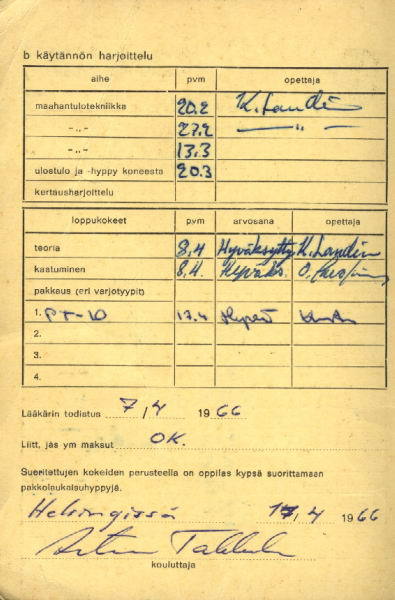 b käytännön harjoittelu
aihe pvm opettaja
maahantulotekniikka 20.2 K. Landén
-„- 27.2 —„—
-„- 13.3
ulostulo ja -hyppy koneesta 20.3
kertausharjoittelu
loppukokeet pvm arvosana opettaja
teoria 8.4 Hyväksytty K. Landén
kaatuminen 8.4. Hyväks. O.
pakkaus (eri varjotyypit)
1. PT-10 17.4
2.
3.
4.
Lääkärin todistus 7.4 1966
Liitt, jäs ym maksut OK.
Suoritettujen kokeiden perusteella on oppilas kypsä suorittamaan
pakkolaukaisuhyppyjä.
Helsingissä 17.4 1966
kouluttaja